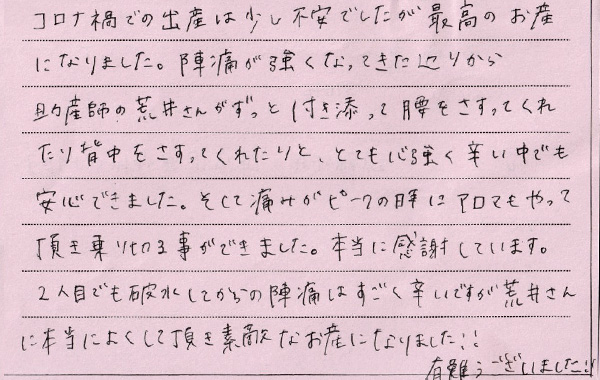 コロナ禍での出産は少し不安でしたが最高のお産
になりました。陣痛が強くなってきた辺りから
助産師の荒井さんがずっと付き添って腰をさすってくれ
たり背中をさすってくれたりと、とても心強く辛い中でも
安心できました。そして痛みがピークの時にアロマもやって
頂き乗り切る事ができました。本当に感謝しています。
2人目でも破水してからの陣痛はすごく辛いですが荒井さん
に本当によくして頂き素敵なお産になりました!!
有難うございました!!